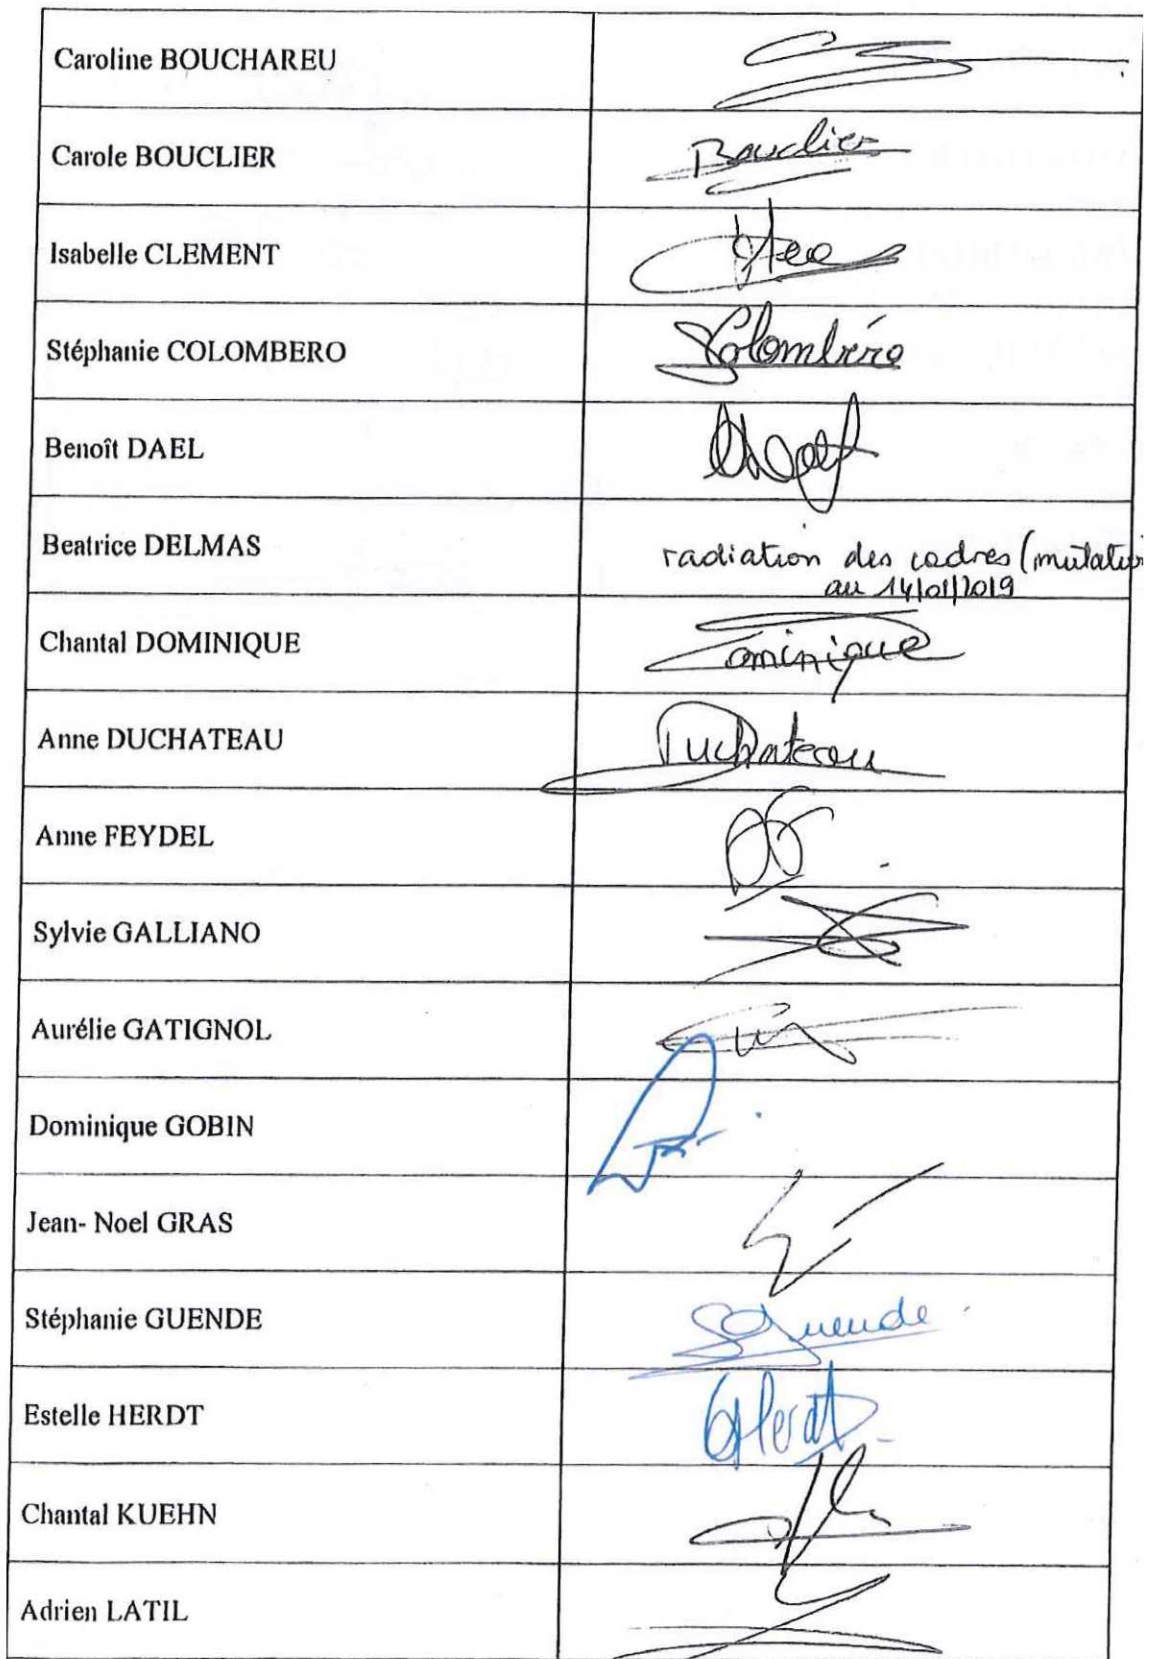 Caroline BOUCHAREU
Carole BOUCLIER
Bouclier
Isabelle CLEMENT
Stéphanie COLOMBERO
Colombéro
Benoît DAEL
Beatrice DELMAS
radiation des cadres (mutation
au 14/01/2019
Chantal DOMINIQUE
Dominique
Anne DUCHATEAU
Duchateau
Anne FEYDEL
Sylvie GALLIANO
Aurélie GATIGNOL
Dominique GOBIN
Jean- Noel GRAS
Stéphanie GUENDE
SGuende
Estelle HERDT
EHerdt
Chantal KUEHN
Adrien LATIL